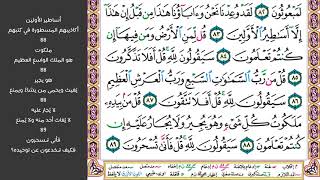 لَمَبْعُوثُونَ ٨٢ لَقَدْ وُعِدْنَا نَحْنُ وَءَابَآؤُنَا هَٰذَا مِن قَبْلُ إِنْ هَٰذَآ
إِلَّآ أَسَٰطِيرُ ٱلْأَوَّلِينَ ٨٣ قُل لِّمَنِ ٱلْأَرْضُ وَمَن فِيهَآ إِن
كُنتُمْ تَعْلَمُونَ ٨٤ سَيَقُولُونَ لِلَّهِ قُلْ أَفَلَا تَذَكَّرُونَ
٨٥ قُلْ مَن رَّبُّ ٱلسَّمَٰوَٰتِ ٱلسَّبْعِ وَرَبُّ ٱلْعَرْشِ ٱلْعَظِيمِ
٨٦ سَيَقُولُونَ لِلَّهِ قُلْ أَفَلَا تَتَّقُونَ ٨٧ قُلْ مَنۢ بِيَدِهِۦ
مَلَكُوتُ كُلِّ شَىْءٍ وَهُوَ يُجِيرُ وَلَا يُجَارُ عَلَيْهِ إِن
كُنتُمْ تَعْلَمُونَ ٨٨ سَيَقُولُونَ لِلَّهِ قُلْ فَأَنَّىٰ تُسْحَرُونَ ٨٩
أساطير الأولين
أكاذيبهم المسطورة في كتبهم
88
ملكوت
هو الملك الواسع العظيم
88
هو يجير
يغيث ويحمي من يشاء ويمنع
88
لا يجار عليه
لا يُغاث أحد منه ولا يُمنع
89
فأنى تسحرون
فكيف تُخدعون عن توحيده؟